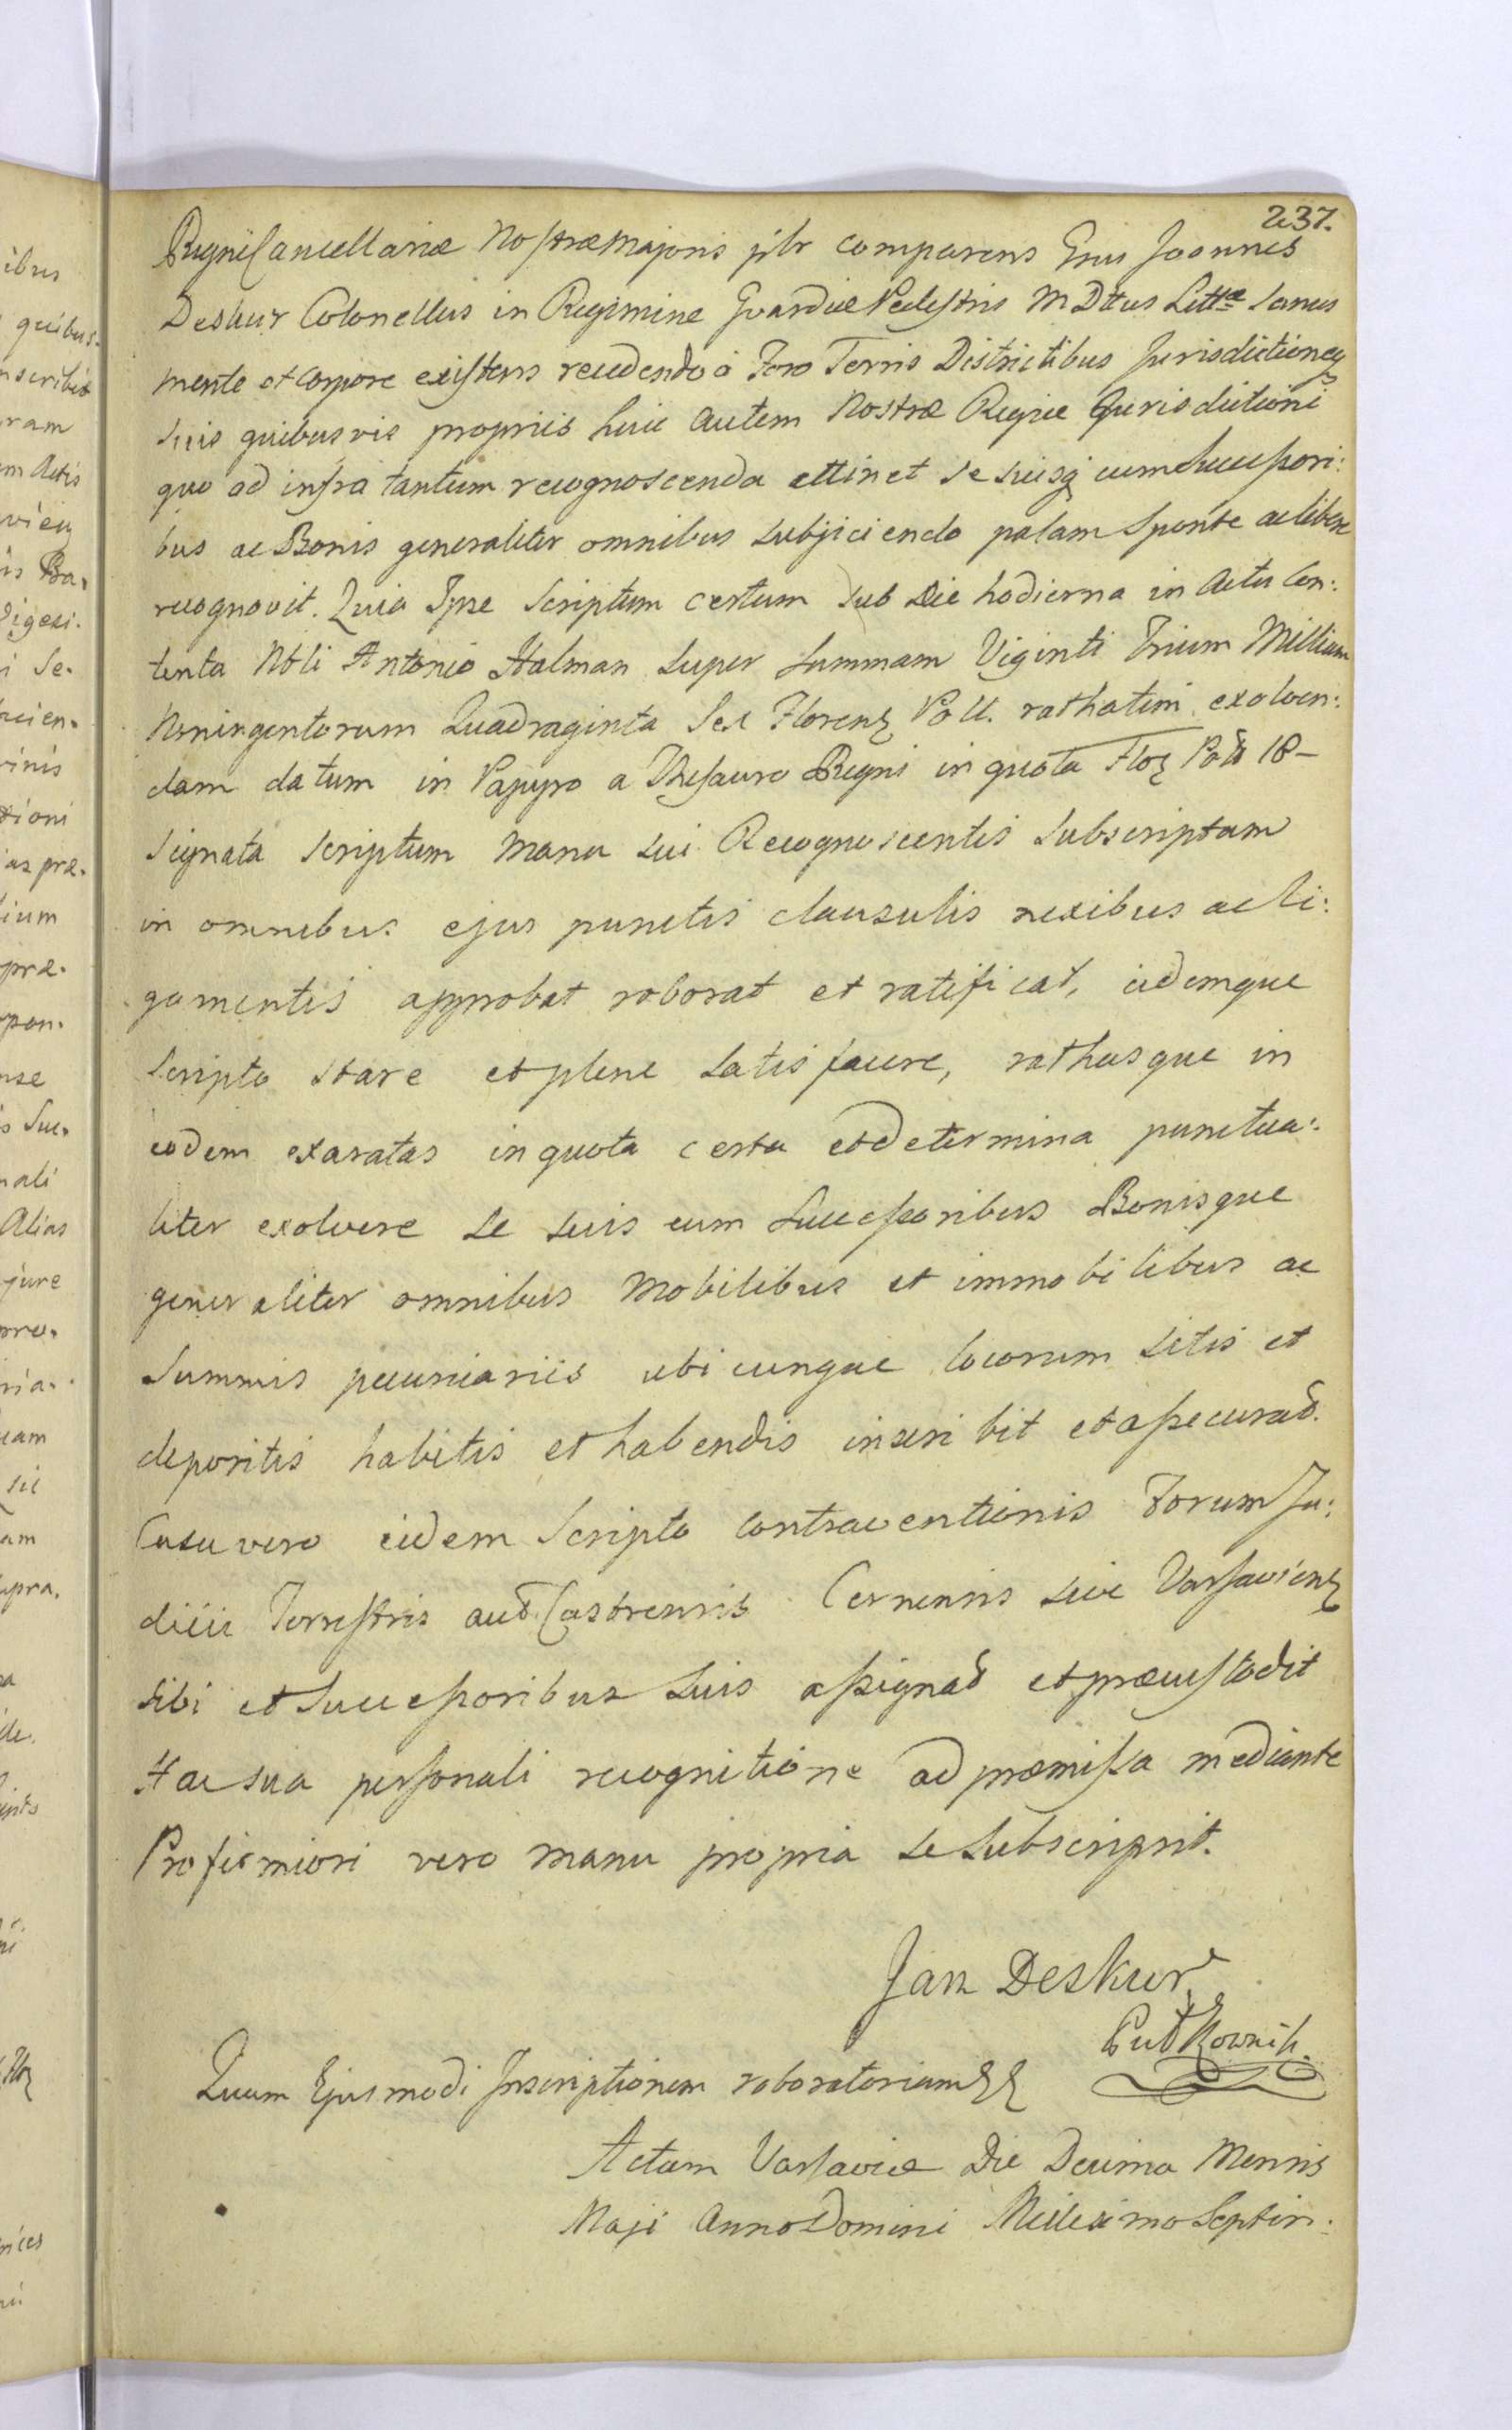 237.
Regni Cancellariæ Nostræ Majoris pltr comparens Gnus Joannes
Deskur Colonellus in Regimine Guardiæ Pedestris M D Litt&#230; Sanus
mente et corpore existens recedendo a Foro Terris Districtibus Jurisdictioneq
suis quibusvis propriis huic autem Nostræ Regiæ Jurisdictioni
quo ad infra tantum recognoscenda attinet se suisq cum Successori:
bus ac Bonis generaliter omnibus subjiciendo palam sponte ac libere
recognovit. Quia Ipse Scriptum certum sub Die hodierna in Actu Con:
tenta Nbli Antonio Halman super summam Viginti Trium Millium
Noningentorum Quadraginta Sex Florenz Poll. rathatim exolven:
dam datum in Papyro a Thesauro Regni in quota Floz Poll 18 –
signata scriptum manu sui Recognoscentis subscriptam
in omnibus ejus punctis clausulis nexibus ac li:
gamentis approbat roborat et ratificat, eidemque
scripto stare et plene satisfacere, rathasque in
eodem exaratas in quota certa et determina punctua:
liter exolvere se suis cum Successoribus Bonisque
generaliter omnibus Mobilibus et immobilibus ac
summis pecuniariis ubicunque locorum sitis et
depositis habitis et habendis inscribit et assecurat.
Casu vero eidem Scripto contraventionis Forum Ju:
dicii Terrestris aut Castrensis Cernensis sive Varsavienz
sibi et Successoribus suis assignat et præcustodit
Hac sua personali recognitione ad præmissa mediante
Pro firmiori vero manu propria se subscripsit.
Jan Deskur
Putkownik.
Quam Ejusmodi Inscriptionem roboratoriam
Actum Varsaviæ Die Decima Mensis
Maji Anno Domini Millesimo Septin:
ibus
quibus
nscribit
ram
m Actis
is Ba.
Digesi.
i Se.
cien.
rinis
ioni
as præ.
ium
præ.
pon.
nse
s Suc.
nali
Alias
jure
pro.
ria.
uam
sic
am
upra.
de.
rices